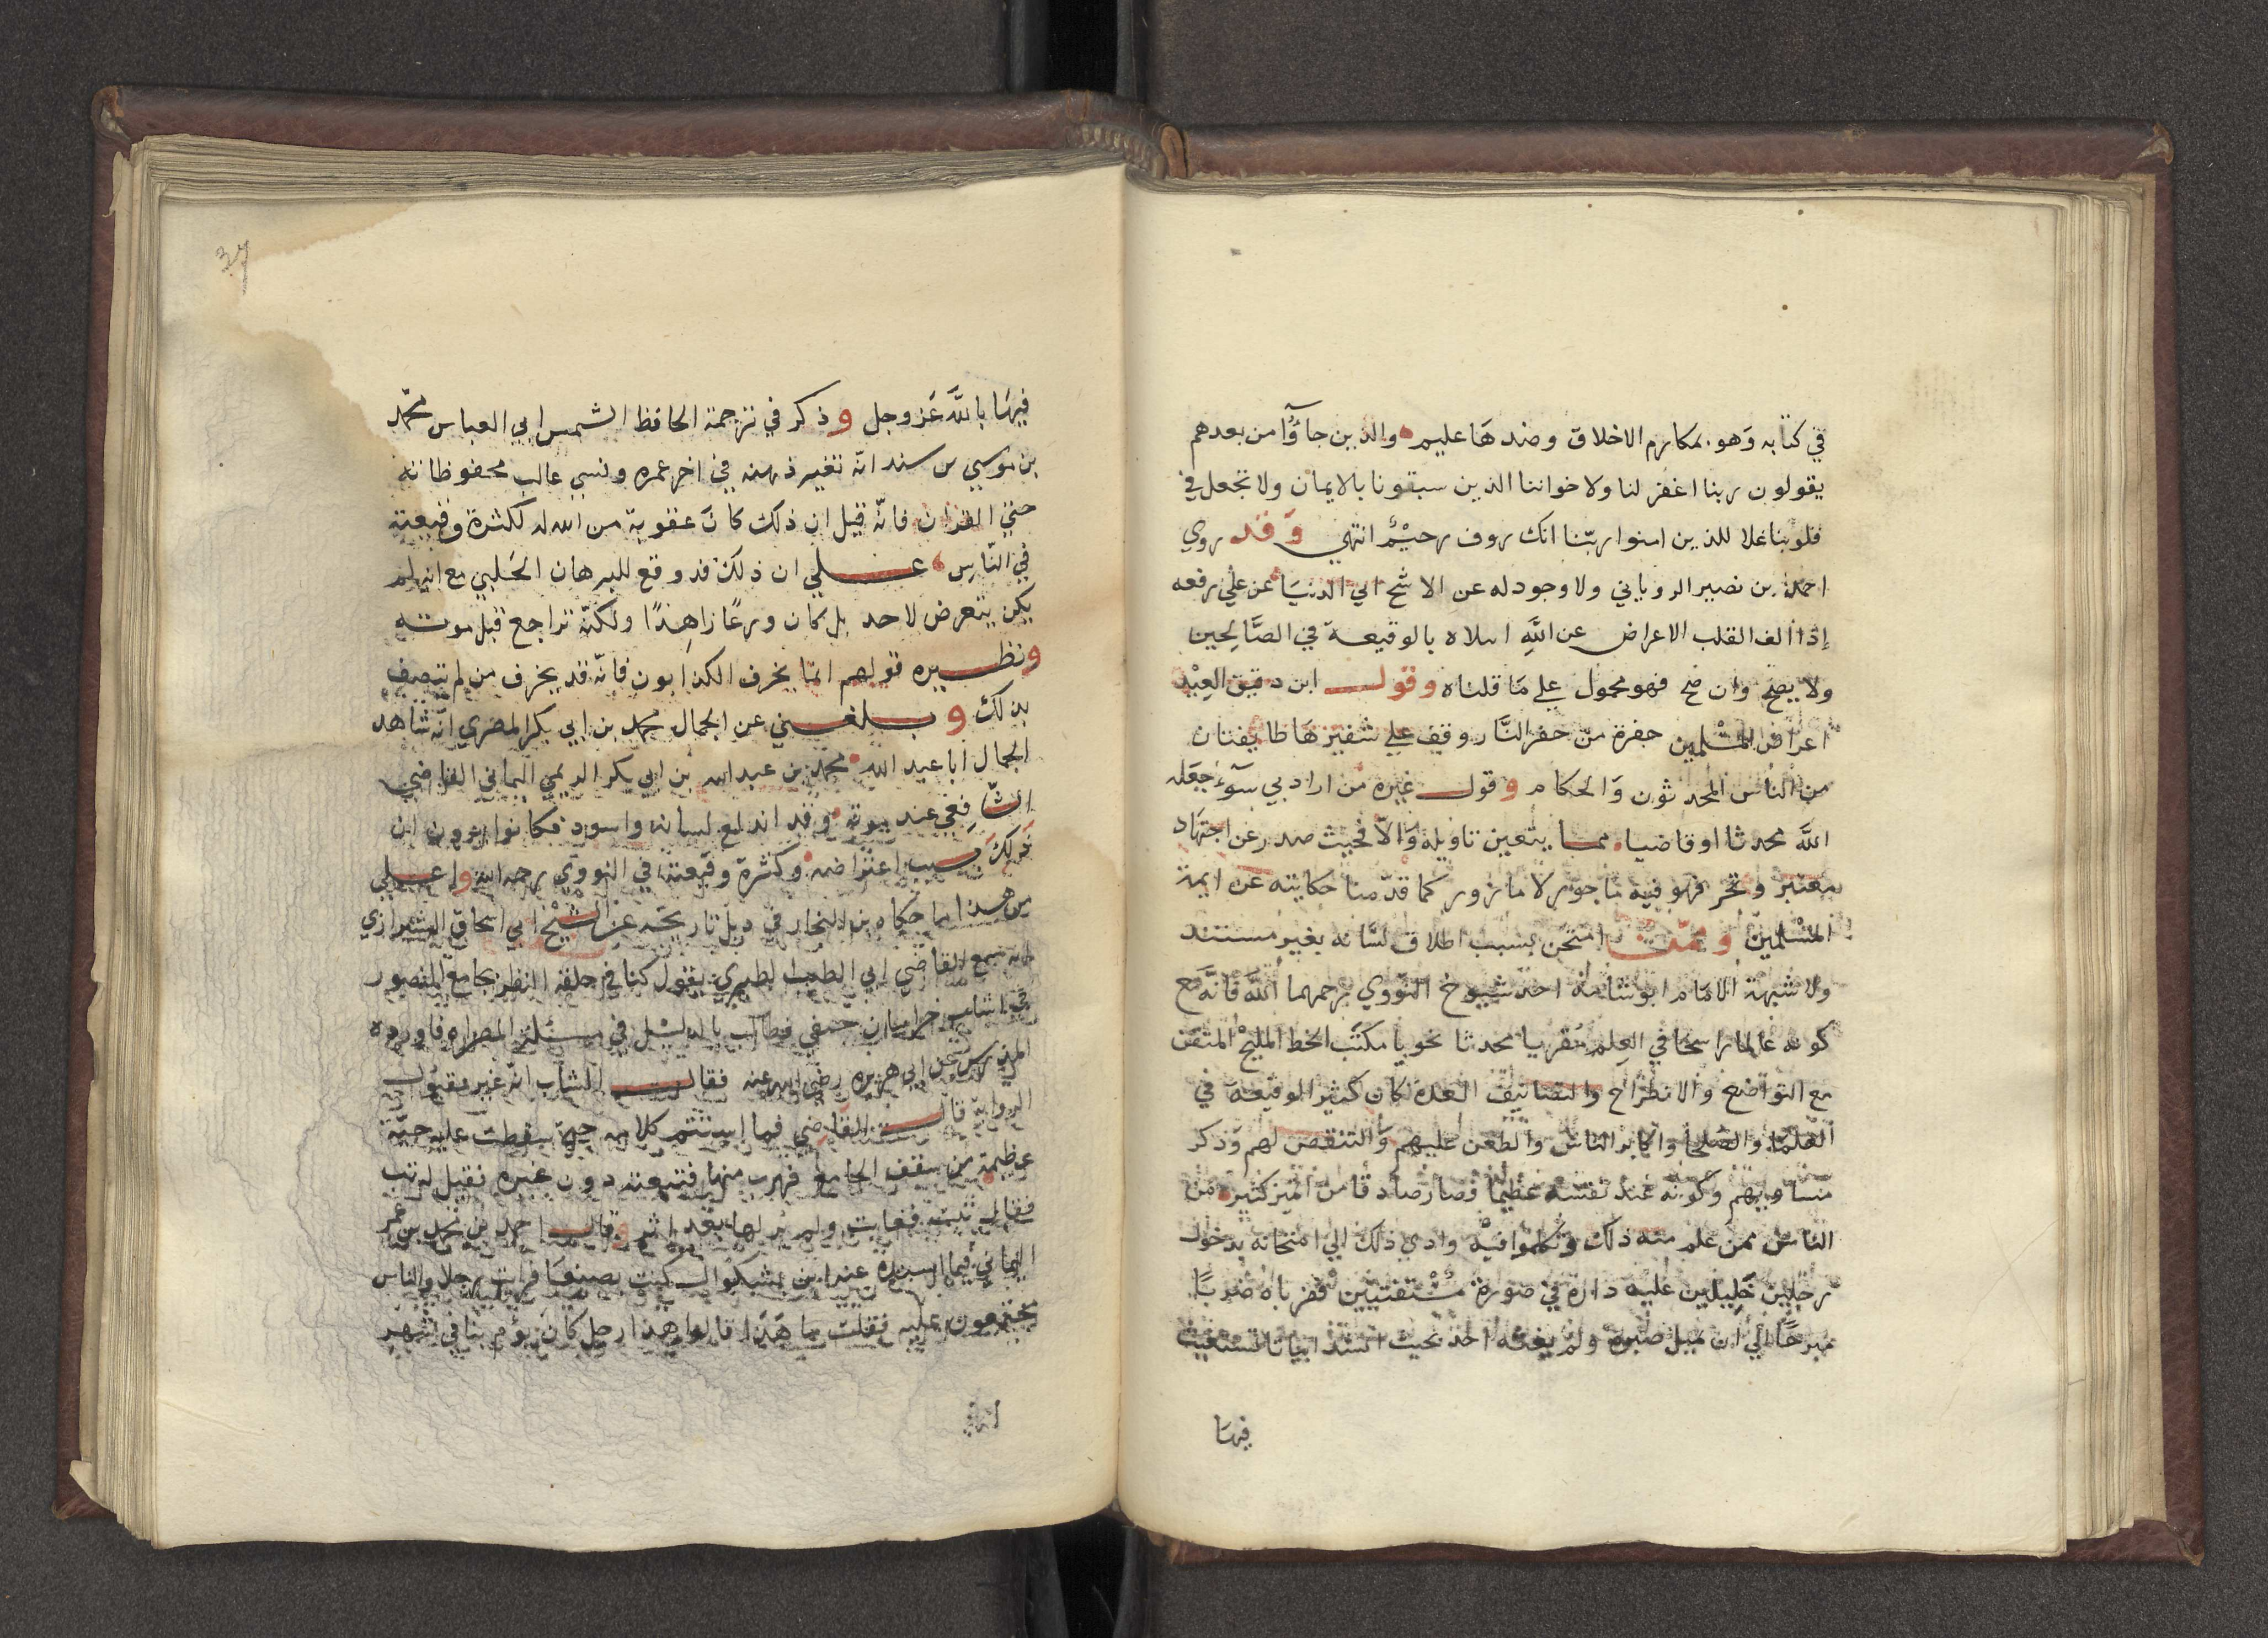 في كتابه وَهو بمكارم الاخلاق وضدهَا عليم والذين جاؤُا من بعدهم
يقولون ربنا اغفر لنا ولاخواننا الذين سبقونا بالايمان ولا تجعل في
قلوبنا غلا للذين امنوا ربّنا انك روف رحيْمٌ انتهي وَقد روي
احمد بن نصير الروياني ولا وجود له عن الاشج ابي الدنيَا عن علي رفعه
إذا ألف القلب الاعراض عن اللَّهِ ابتلاه بالوقيعة في الصَّالِحين
ولا يصح وان صح فهو محمول علي مَا قلناه وقول ابن دقيق العِيْد
اعراض المسْلمين حفرة من حفر النَّار وقف علي شفيرهَا طايفتان
من الناس المحدثون وَالحكام وقول غيره من اراد بي سوٓءً جعَله
اللَّه محدثا او قاضيا مما يتعين تاويله وَالّا فحيث صدر عن اجتهاد
معتبر وتحر فهو فيه ماجور لا مازور كما قدّمنا حكايته عن ايمة
المسْلمين وممّن امتحن بسبب اطلاق لسَّانه بغير مستند
ولا شبهة الامَام ابو شامة احد شيوخ النّووي رحمهما اللَّه فانَّه مع
كونه عالما راسخا في العِلم مُقريا محدثا نحويا مكتب الخط المليح المتقن
مع التواضع والانطراح والتصانيف العدة كان كثير الوقيعة في
العلمَا والصلحَا واكابر الناس والطعن عليهم وَالتنقص لهم وذكر
مساويهم وكونه عند نفسه عظيما فصار صادقا من اعين كثير من
الناس ممن علم منه ذلك وتكلموا فيْه وادي ذلك الي امتحانه بدخول
رجلين جَلِيلين عليه داره في صورة مسْتفتيين فضرباه ضربًا
مبرحًا الي ان عيل صبره ولم يغثه احد بحيث انشد ابياتا استغيث
فيهَا
37
فيهَا باللَّه عَز وجل وذكر في ترجمة الحافظ الشمس ابي العباس محمّد
بن موسي بن سند انّه تغير ذهنه في اخر عمره ونسي غالب محفوظاته
حتي القران فانّه قيل ان ذلك كان عقوبة من الله له لكثرة وقيعته
في النّاس علي ان ذلك قد وقع للبرهان الحَلبي مع انه لم
يكن يتعرض لاحد بل كان ورعًا زاهِدًا ولكنّه تراجع قبل موته
ونظيره قولهم انمّا يخرف الكذابون فانّه قد يخرف من لم يتصف
بذلك وبلغني عن الجمال محمد بن ابي بكر المصري انّه شاهد
الجمال ابا عبد الله محمد بن عبد الله بن ابي بكر الريمي اليماني القاضي
الشّافِعي عند موته وقد اندلع لسانه واسود فكانوا يرون ان
ذَلك بسبب اعتراضه وكثرة وقيعته في النووي رحمه الله واعلي
من هذا ما حكاه بن النجار في ذيل تاريخه عن الشيْخ ابي اسحاق الشيرازي
انه سمع القاضي ابي الطيب الطبري يقول كنا في حلقة النظر بجامع المنصور
فجا شاب خراساني حنفي فطالب بالدليْل في مسئلة المصراه فاورده
المدرس عن ابي هريره رضي الله عنه فقال الشاب انّه غير مقبُول
الرواية قال القاضي فما استتم كلامه حتي سقطت عليه حيّة
عظيمة من سقف الجامع فهرب منها فتبعته دون غيره فقيل له تب
فقال تبت فغابت ولم يُر لها بعد اثر وقال احمد بن محمد بن عمر
اليماني فيما اسنده عنه ابن بشكوال كنت بصنعَا فرايت رجلا والناس
مجتمعون عليه فقلت ما هَذا قالوا هذا رجل كان يؤم بنا في شهر